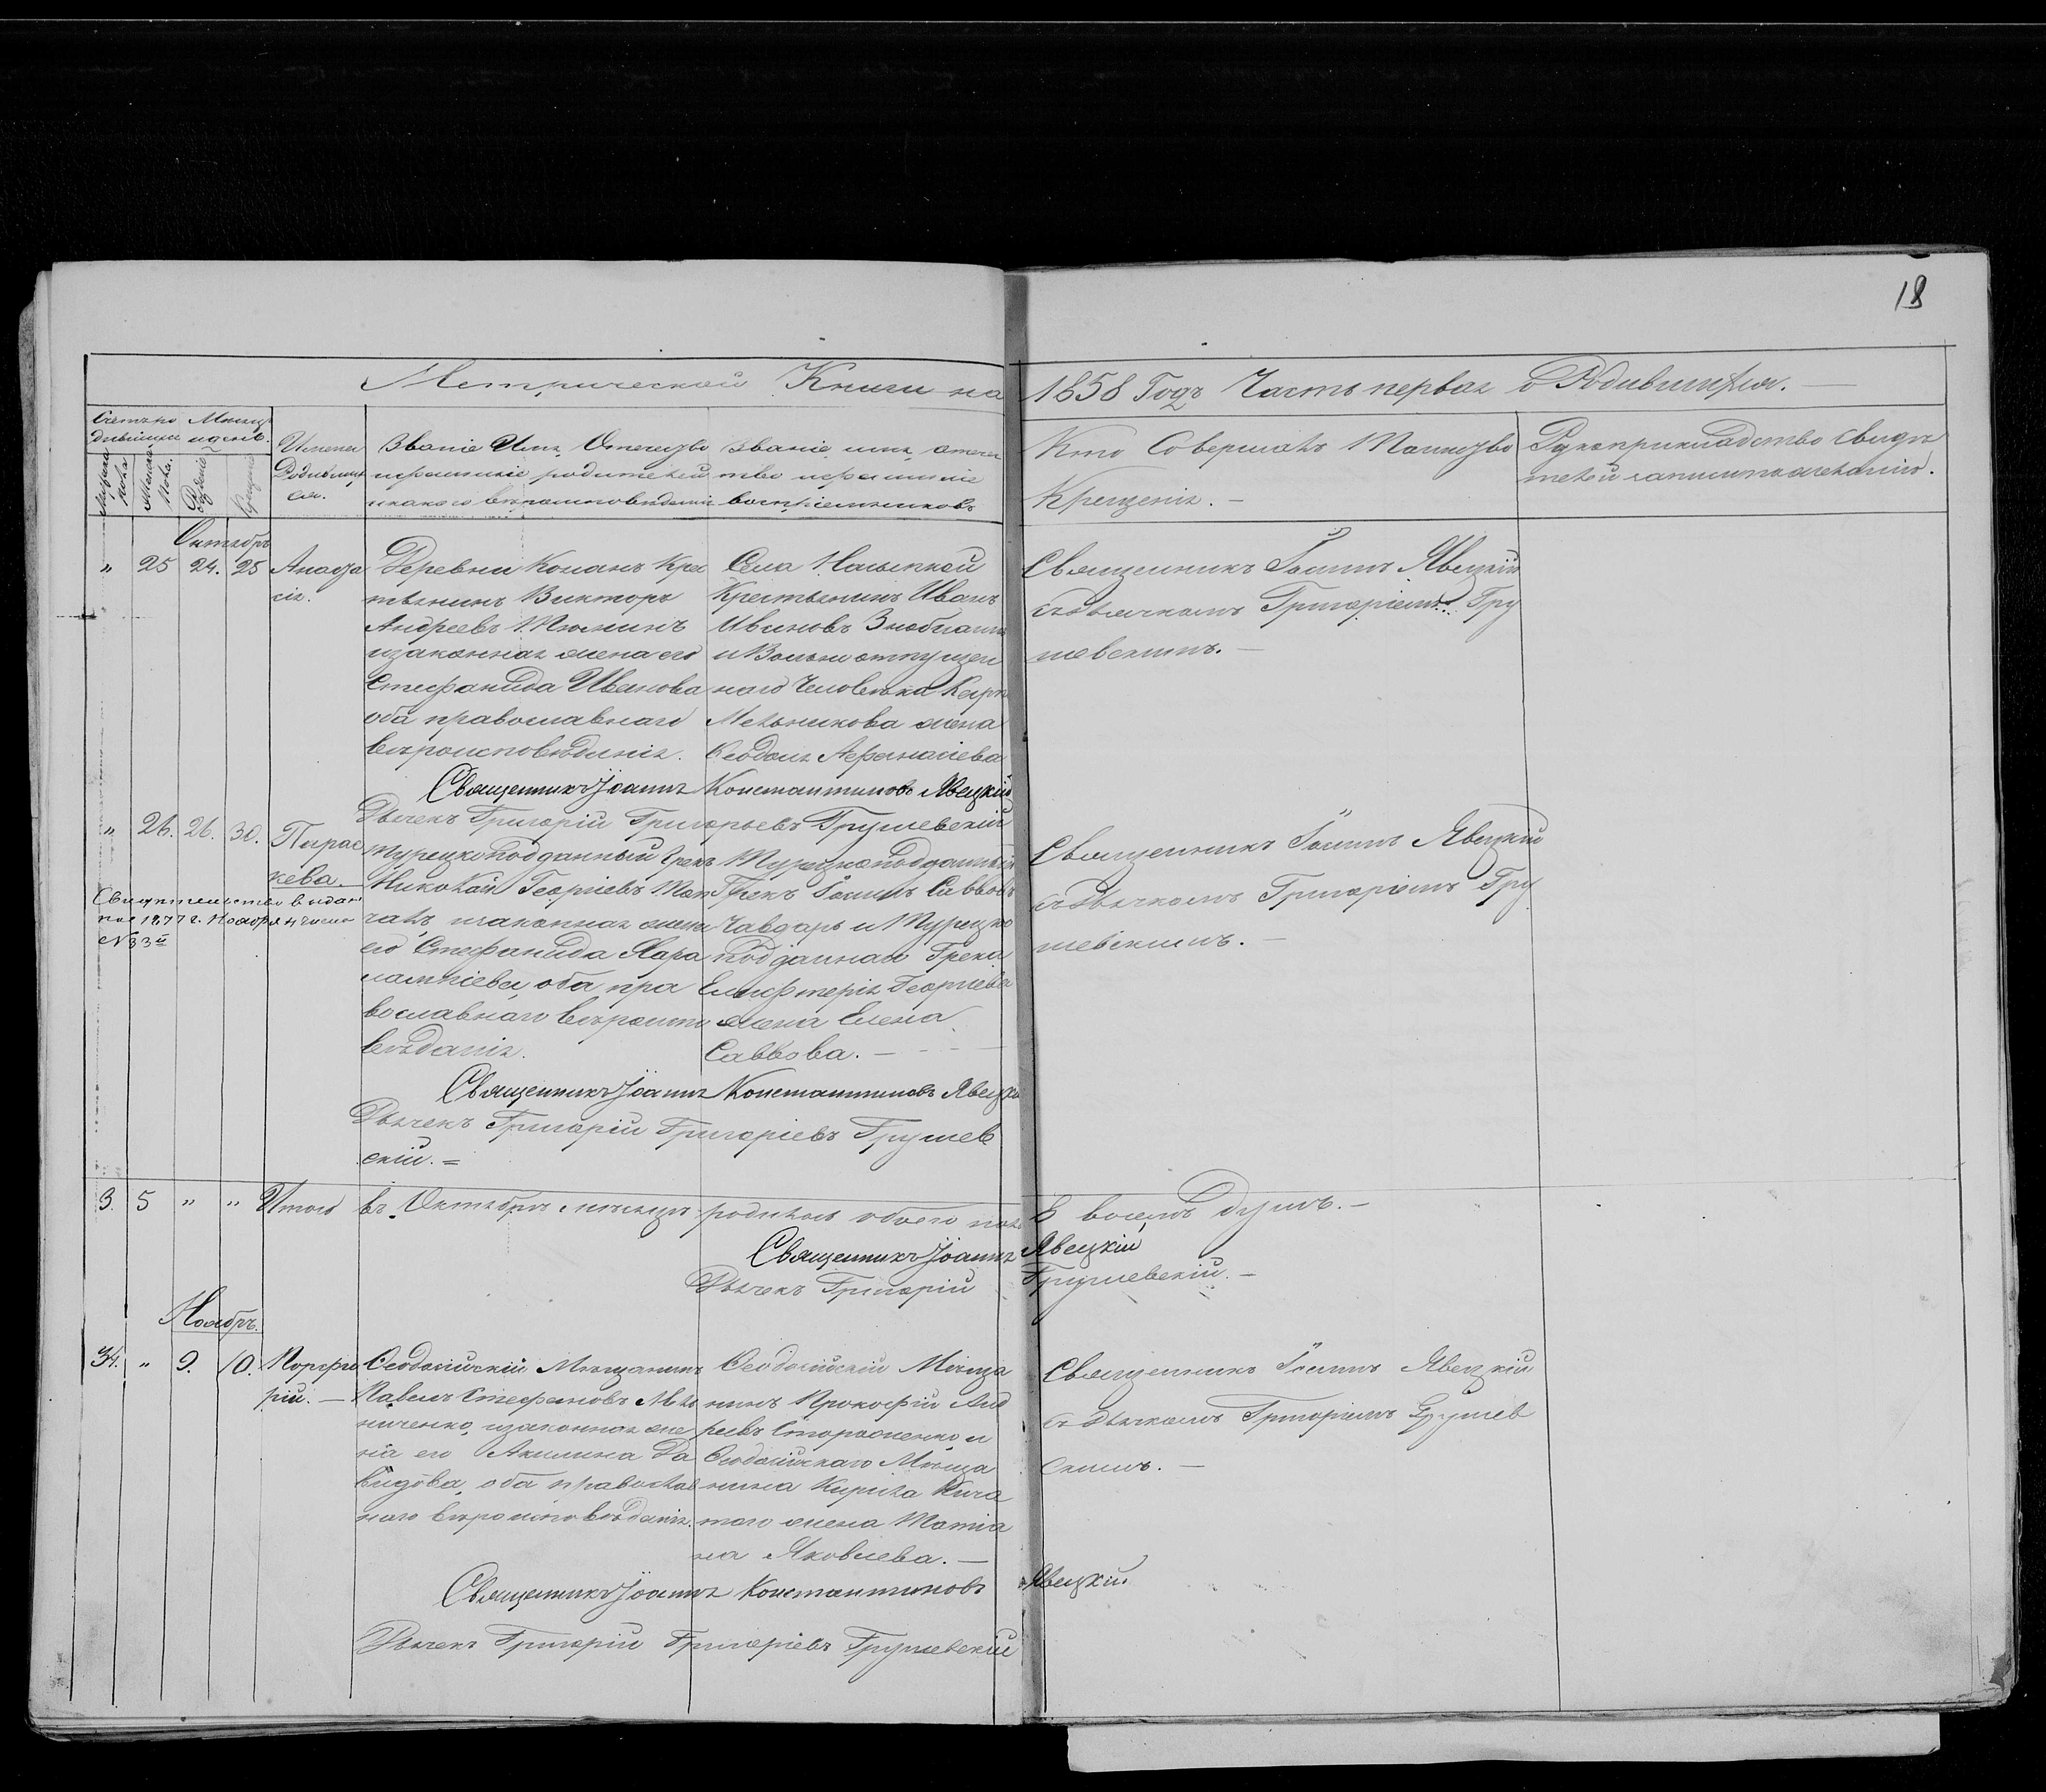 18
Метрической Книги на 1858 Годъ Часть первая о Родившихся.
Счетъ родившихся
Мѣсяцъ и день.
Мужеска пола
Женска пола.
Рожденія
Крещенія
Имена Родившихся.
Званіе Имя, Отечество
и фамиліе родителей
и какого вѣроисповѣданія
Званіе, имя, отечество
и фамиліе
воспріемниковъ
Кто Совершалъ Таинство
Крещенія.
Рукоприкладство свидѣтелей
записи по желанію.
Октябрь
" 25 24. 25
Анастасія.
Деревни Коланъ Крес
тьянинъ Викторъ
Андреевъ Тюнинъ
и законная жена его
Стефанида Иванова
оба православнаго
вѣроисповѣданія.
Села Насыпкой
Крестьянинъ Иванъ
Ивановъ
и Вольно отпущен
наго человѣка Карпа
Мельникова жена
Ѳеодосія Афанасіева
Священникъ Іоаннъ Явецкій
съ дьячкомъ Григоріемъ Гру
шевскимъ.
Священникъ Іоаннъ Константиновъ Явецкій
Дьячекъ Григорій Григорьевъ Грушевскій
" 26. 26. 30.
Парас
кева.
Свидетельство выдан
ное 1877 г. Ноября 4 числа
№ 33й
Турецкоподданный Грекъ
Николай Георгіевъ
и законная жена
его Стефанида Хара
лампіева, оба пра
вославнаго вѣроиспо
вѣданія.
Турецкоподданный
Грекъ Іоаннъ Саввовъ
Чавдарь и Турецко
подданнаго Грека
Елефтерія Георгіева
жена Елена
Саввова.
Священникъ Іоаннъ Явецкій
съ дьячкомъ Григоріемъ Гру
шевскимъ.
Священникъ Іоаннъ Константиновъ Явецкій
Дьячекъ Григорій Григоріевъ Грушев
скій.
3. 5 " " Итого въ Октябрѣ мѣсяцѣ родилось обоего пола 8 восемь душъ.
Священникъ Іоаннъ Явецкій
Дьячекъ Григорій Грушевскій.
Ноябрь.
34. " 9. 10.
Порфи
рій.
Ѳеодосійскій Мѣщанинъ
Павелъ Стефановъ Мѣл
ниченко, и законная же
на его Акилина Да
видова, оба православ
наго вѣроисповѣданія.
Ѳеодосійскій Мѣща
нинъ Прокофій Анд
реевъ Стороженко, и
Ѳеодосійскаго Мѣща
нина Кирила
жена Татіа
на Яковлева.
Священникъ Іоаннъ Явецкій
съ Дьячкомъ Григоріемъ Грушев
скимъ.
Священникъ Іоаннъ Константиновъ Явецкій
Дьячекъ Григорій Григоріевъ Грушевскій